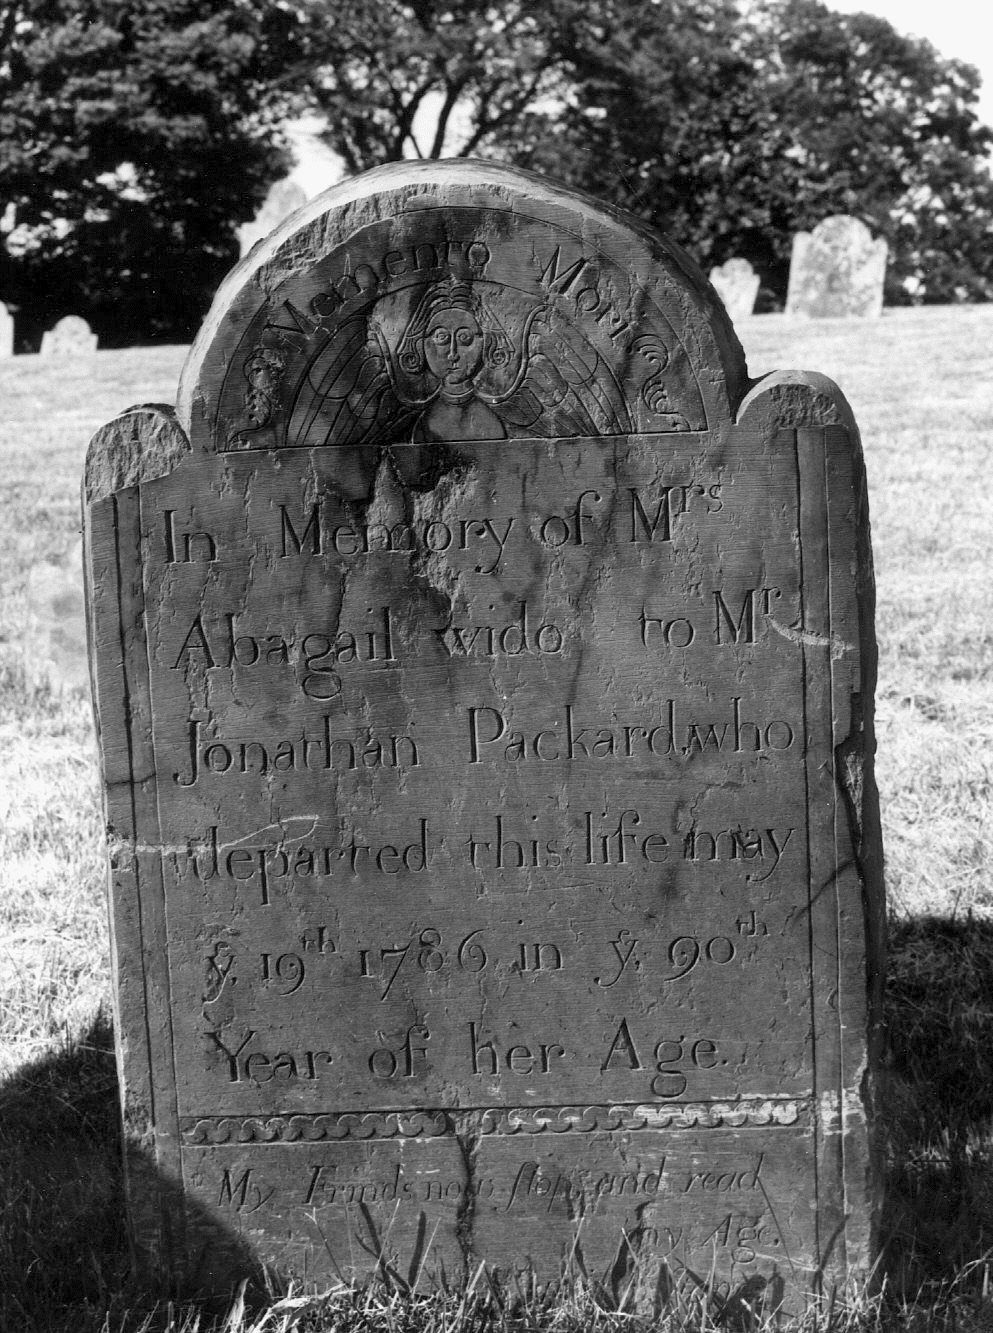 Memento Mori
In Memory of Mrs
Abagail wido to Mr
Jonathan Packard, who
departed this life may
ye. 19th 1786 in ye. 90th
Year of her Age.
My Frinds now stop and read
my Age.